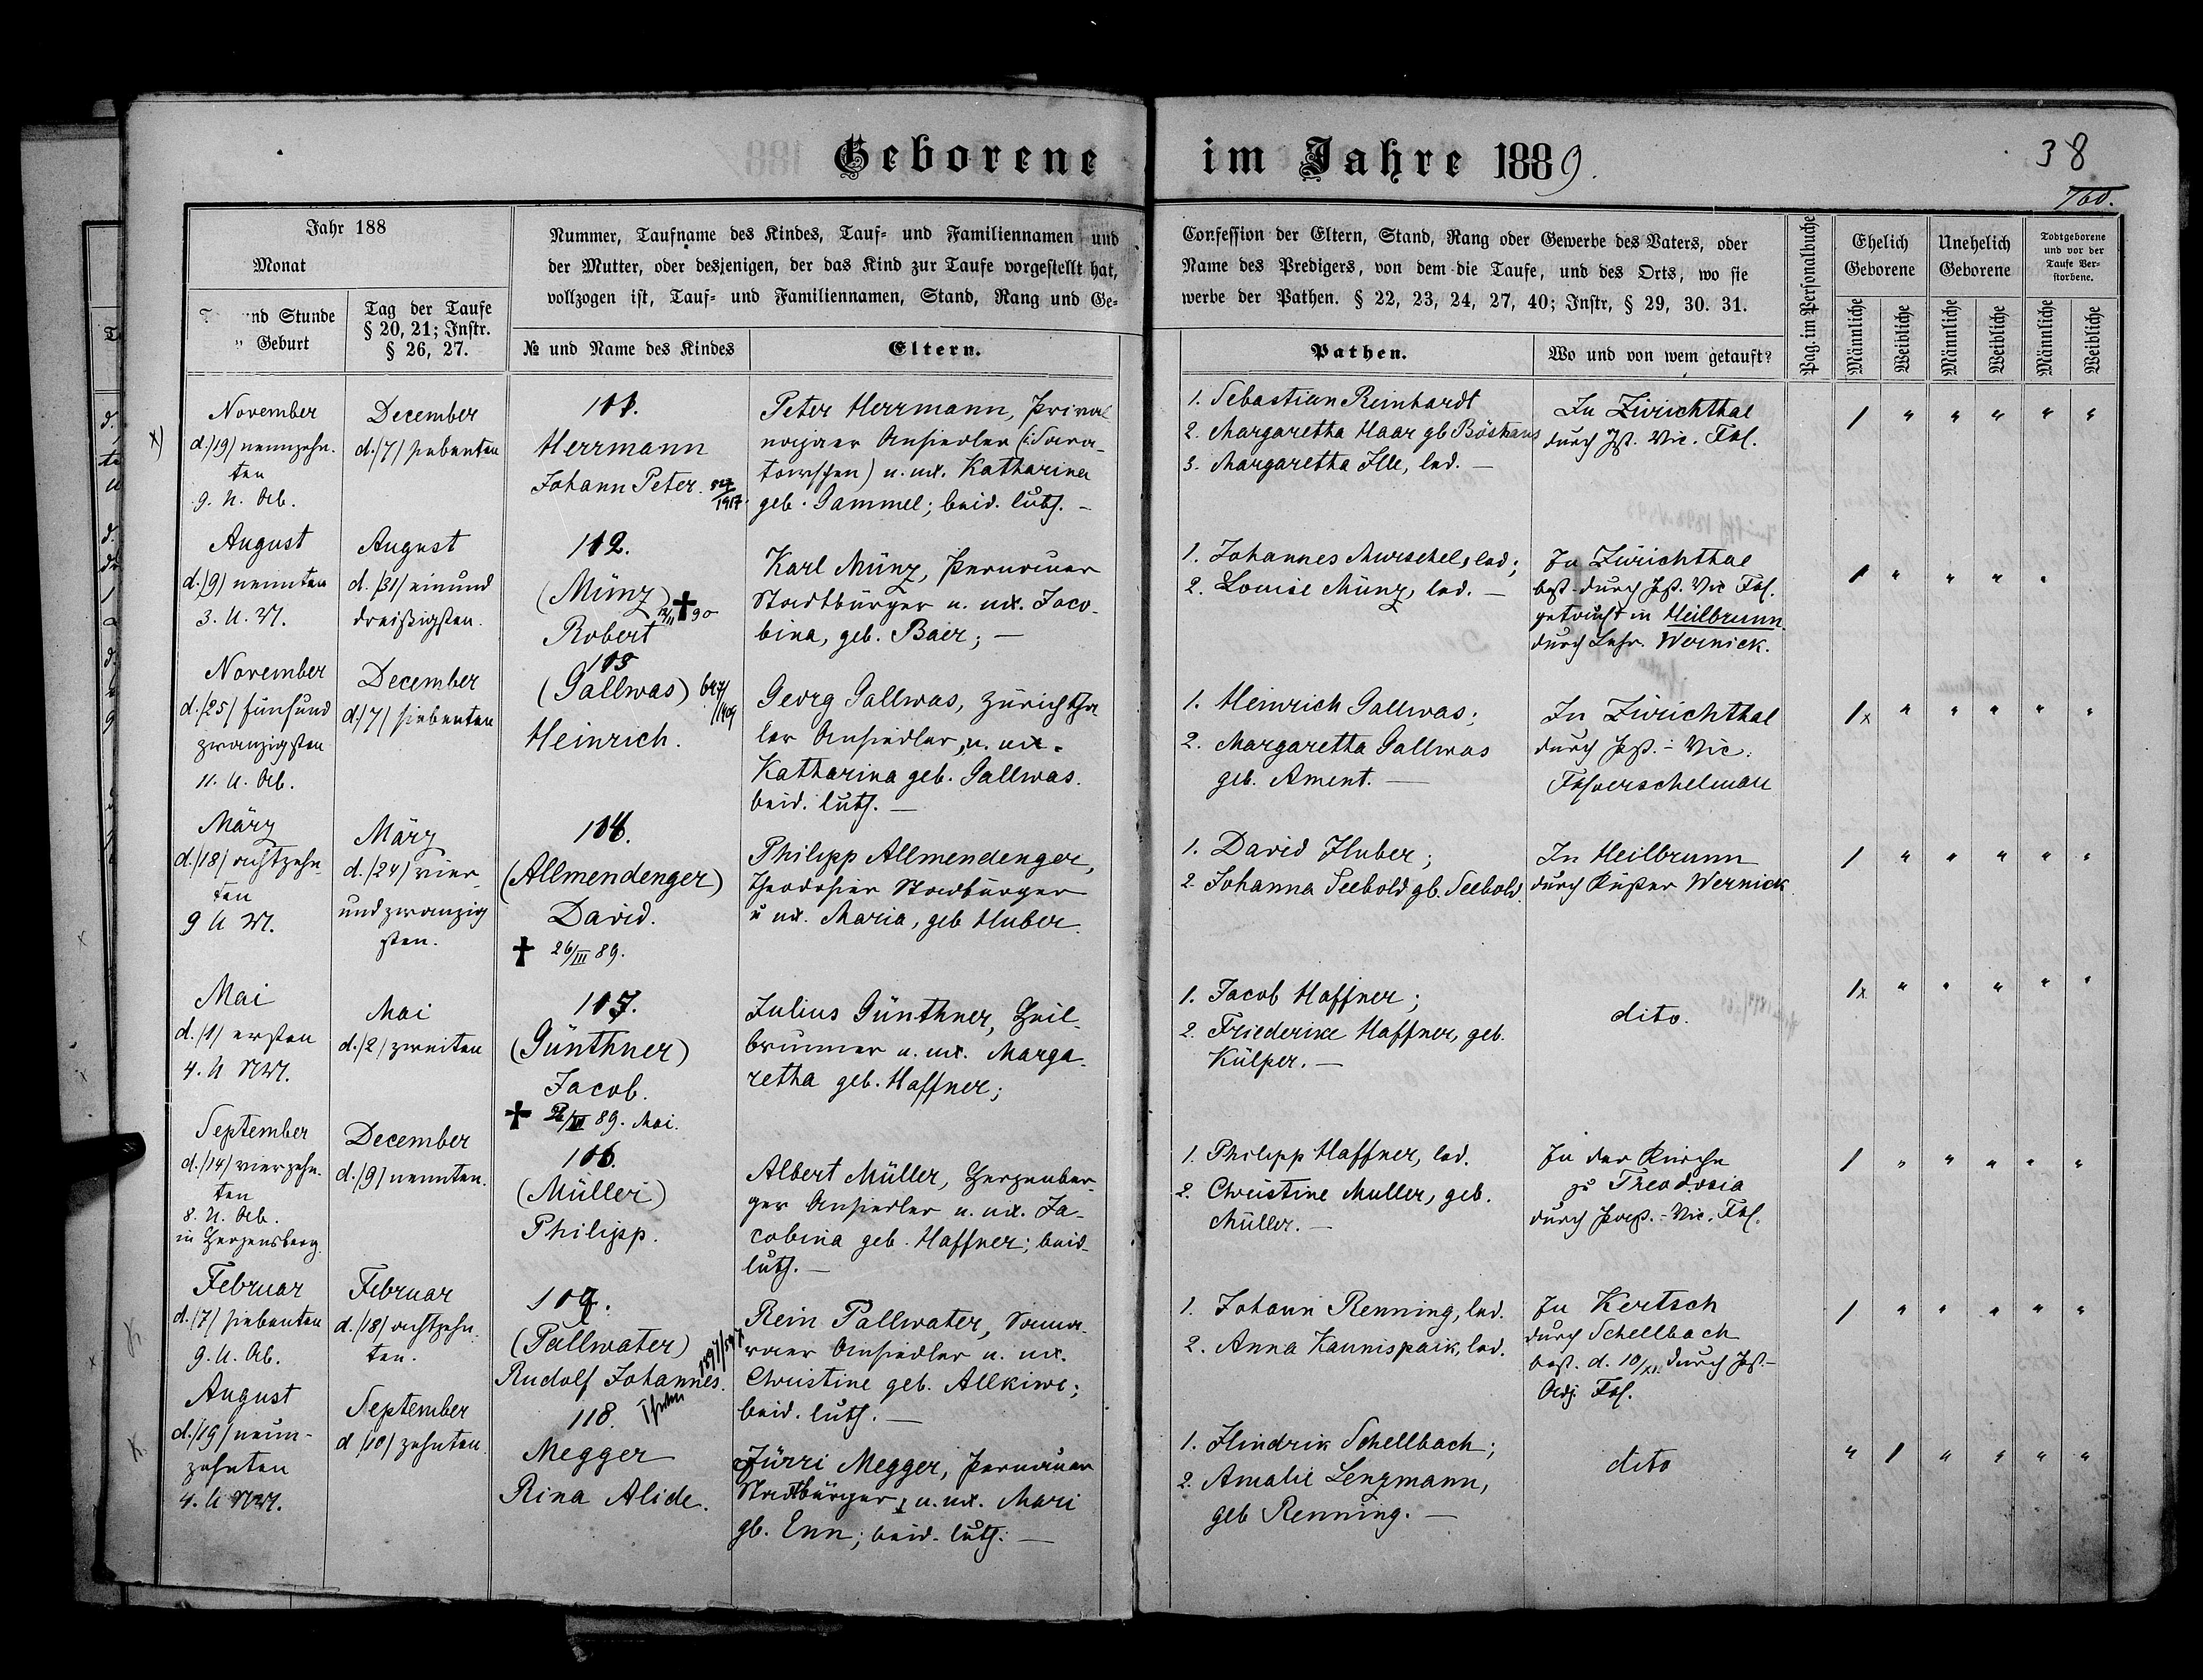 Geborene im Jahre 1889.
38
760.
Jahr 188
Monat
nd Stunde
Geburt
Tag der Taufe
§ 20, 21; Instr.
§ 26, 27.
Nummer, Taufname des Kindes, Tauf- und Familiennamen und
der Mutter, oder desjenigen, der das Kind zur Taufe vorgestellt hat,
vollzogen ist, Tauf- und Familiennamen, Stand, Rang und Ge-
№ und Name des Kindes
Eltern.
Confession der Eltern, Stand, Rang oder Gewerbe des Vaters, oder
Name des Predigers, von dem die Taufe, und des Orts, wo sie
werbe der Pathen. § 22, 23, 24, 27, 40; Instr, § 29, 30. 31.
Pathen.
Wo und von wem getauft?
Pag. im Personalbuche
Ehelich
Geborene
Unehelich
Geborene
Todtgeborene
und vor der
Taufe Ver-
storbene.
Männliche
Weibliche
Männliche
Weibliche
Männliche
Weibliche
November
d. /19/ neunzehn-
ten
9. U. Ab.
December
d. /7/ siebenten
Herrmann
Johann Peter.
Peter Herrmann,
Ansiedler (:Sara-
towschen) u. ux. Katharina
geb. Gammel; beid. luth. –
1. Sebastian Reinhardt
2. Margaretha Haar gb
3. Margaretha Ille, led. –
In Zürichthal
durch Past. Vic. Fhl.
1 " " " " "
August
d. /9/ neunten
3. U. M.
August
d. /31/ einund
dreißigsten.
112.
(Münz)
✝ 90
Robert
Karl Münz, Pernauer
Stadtbürger u. ux. Jaco-
bina, geb. Baer; –
1. Johannes Murschel, led;
2. Louise Münz, led. –
In Zürichthal
best. durch Past. Vic Fhl.
getauft in Heilbrunn
durch Lehr. Wernick.
1 " " " "
November
d. /25/ fünfund
zwanzigsten
11. U. Ab.
December
d. /7/ siebenten
(Gallwas)
Heinrich.
Georg Gallwas, Züricht­ha
ler Ansiedler, u. ux.
Katharina geb. Gallwas.
beid. luth. –
1. Heinrich Gallwas;
2. Margaretta Gallwas
geb. Ament. –
In Zürichthal
durch Past. - Vic.
1x " " " " "
März
d. /18/ achtzehn-
ten
9 U M.
März
d. /24/ vier-
undzwanzig
sten.
(Allmendenger)
David.
✝ 26/III 89.
Philipp Allmendenger,
Theodosier Stadbürger
u ux. Maria, geb Huber.
1. David Huber;
2. Johanna Seebold gb. Seebold.
In Heilbrunn
durch Küster Wernick
1 " " " " "
Mai
d. /1/ ersten
4. U NM.
Mai
d. /2/ zweiten
(Günthner)
Jacob.
✝ 89. Mai.
Julius Günthner, Heil-
brunner u. ux. Marga-
retha geb. Haffner;
1. Jacob Haffner;
2. Friederike Haffner, geb.
Külper. –
dito.
1x " " " " "
September
d. /14/ vierzehn-
ten
8. U. Ab.
in Herzensberg.
December
d. /9/ neunten.
(Müller)
Philipp.
Albert Müller, Herzenber-
ger Ansiedler u. ux. Ja-
cobina geb. Haffner; beid-
luth. –
1. Philipp Haffner, led.
2. Christine Muller, geb.
Müller. –
In der Kirche
zu Theodosia
durch Past. - Vic. Fhl.
1 " " " " "
Februar
d. /7/ siebenten
9. U. Ab.
Februar
d. /18/ achtzehn-
ten.
(Pallwater)
Rudolf Johannes.
Rein Pallwater, Sama-
raer Ansiedler u. ux.
Christine geb. Allkiwi;
beid. luth. –
1. Johann Renning, led.
2. Anna Kannispaik, led.
In Kertsch
durch Schellbach
best. d. 10/XI. durch Past-
Adj. Fhl.
1 " " " " "
August
d. /19/ neun-
zehnten
4. U NM.
September
d /10/ zehnten.
118.
Megger
Rina Alide.
Jürri Megger, Pernauer
Stadtbürger, u. ux. Mari
gb. Enn; beid. luth: –
1. Hindrik Schellbach;
2. Amalie Lenzmann,
geb Renning. –
dito
" 1 " " " "